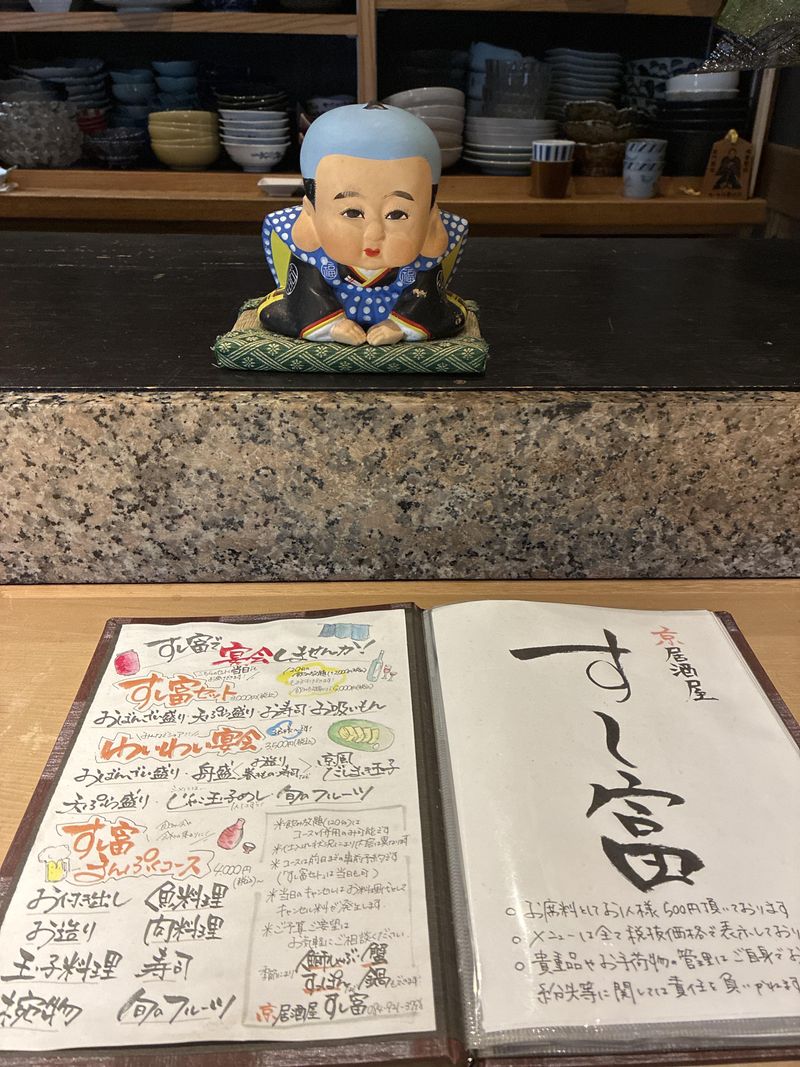 すし富で宴会しませんか!
すし富セット
おばんざい盛り・天ぷら盛り・お寿司・お吸いもん
わいわい宴会 3,500円(税込)
おばんざい盛り・舟盛〈お造り
巻きもの寿司〉
京風
だしまき玉子
天ぷら盛り・じゃこ玉子めし・旬のフルーツ
すし富
まんぷくコース 4,000円
(税込)~
お付き出し 魚料理
お造り 肉料理
玉子料理 寿司
椀物 旬のフルーツ
※飲み放題(120分)は
コースと併用のみ可能です
※仕入れ状況により内容は異なります
※コースは前日までの事前予約です
(「すし富セット」は当日も可)
※当日のキャンセルはお料理代として
キャンセル料が発生します
※ご予算ご要望は
お気軽にご相談ください
季節により
鰤しゃぶ 蟹
すっぽん 鍋
京居酒屋 すし富
京居酒屋
すし富
○ お席料としてお1人様500円頂いております
○ メニューは全て税抜価格で表示しており
○ 貴重品やお手荷物の管理はご自身でお
紛失等に関しては責任を負いかねます